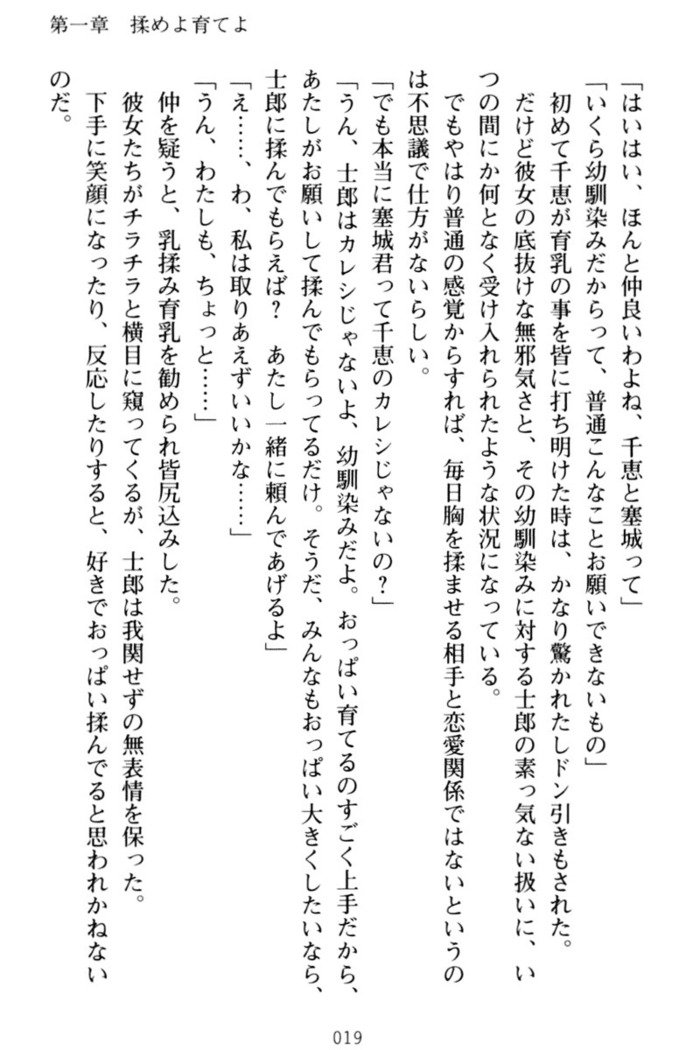 第一章　揉めよ育てよ
「はいはい、ほんと仲良いわよね、千恵と塞城って」
「いくら幼馴染みだからって、普通こんなことお願いできないもの」
初めて千恵が育乳の事を皆に打ち明けた時は、かなり驚かれたしドン引きもされた。
だけど彼女の底抜けな無邪気さと、その幼馴染みに対する士郎の素っ気ない扱いに、い
つの間にか何となく受け入れられたような状況になっている。
でもやはり普通の感覚からすれば、毎日胸を揉ませる相手と恋愛関係ではないというの
は不思議で仕方がないらしい。
「でも本当に塞城君って千恵のカレシじゃないの？」
「うん、士郎はカレシじゃないよ、幼馴染みだよ。おっぱい育てるのすごく上手だから、
あたしがお願いして揉んでもらってるだけ。そうだ、みんなもおっぱい大きくしたいなら、
士郎に揉んでもらえば？　あたし一緒に頼んであげるよ」
「え……、わ、私は取りあえずいいかな……」
「うん、わたしも、ちょっと……」
仲を疑うと、乳揉み育乳を勧められ皆尻込みした。
彼女たちがチラチラと横目に窺ってくるが、士郎は我関せずの無表情を保った。
下手に笑顔になったり、反応したりすると、好きでおっぱい揉んでると思われかねない
のだ。
019